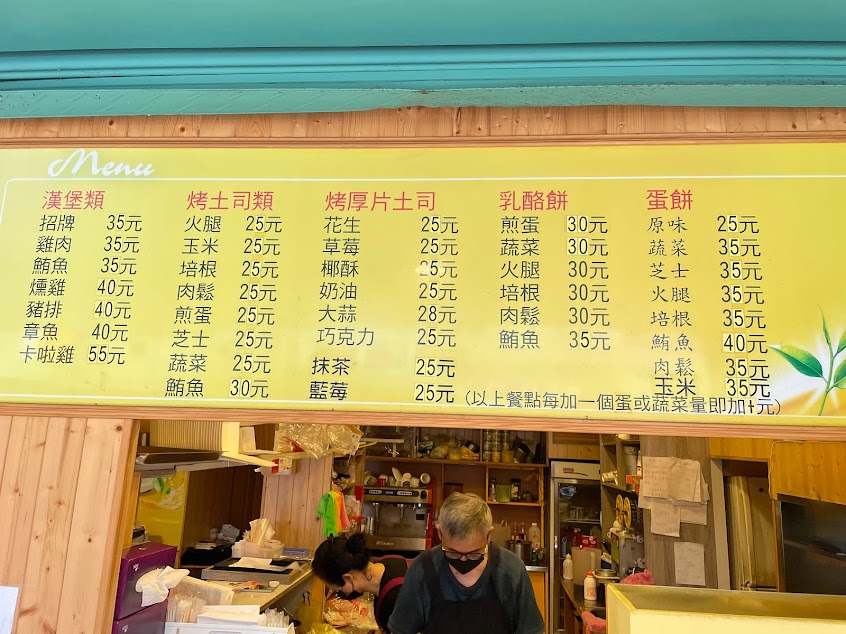 Menu
漢堡類
招牌 35元
雞肉 35元
鮪魚 35元
燻雞 40元
豬排 40元
章魚 40元
卡啦雞 55元
烤土司類
火腿 25元
玉米 25元
培根 25元
肉鬆 25元
煎蛋 25元
芝士 25元
蔬菜 25元
鮪魚 30元
烤厚片土司
花生 25元
草莓 25元
椰酥 25元
奶油 25元
大蒜 28元
巧克力 25元
抹茶 25元
藍莓 25元
乳酪餅
煎蛋 30元
蔬菜 30元
火腿 30元
培根 30元
肉鬆 30元
鮪魚 35元
蛋餅
原味 25元
蔬菜 35元
芝士 35元
火腿 35元
培根 35元
鮪魚 40元
肉鬆 35元
玉米 35元
(以上餐點每加一個蛋或蔬菜量即加 元)